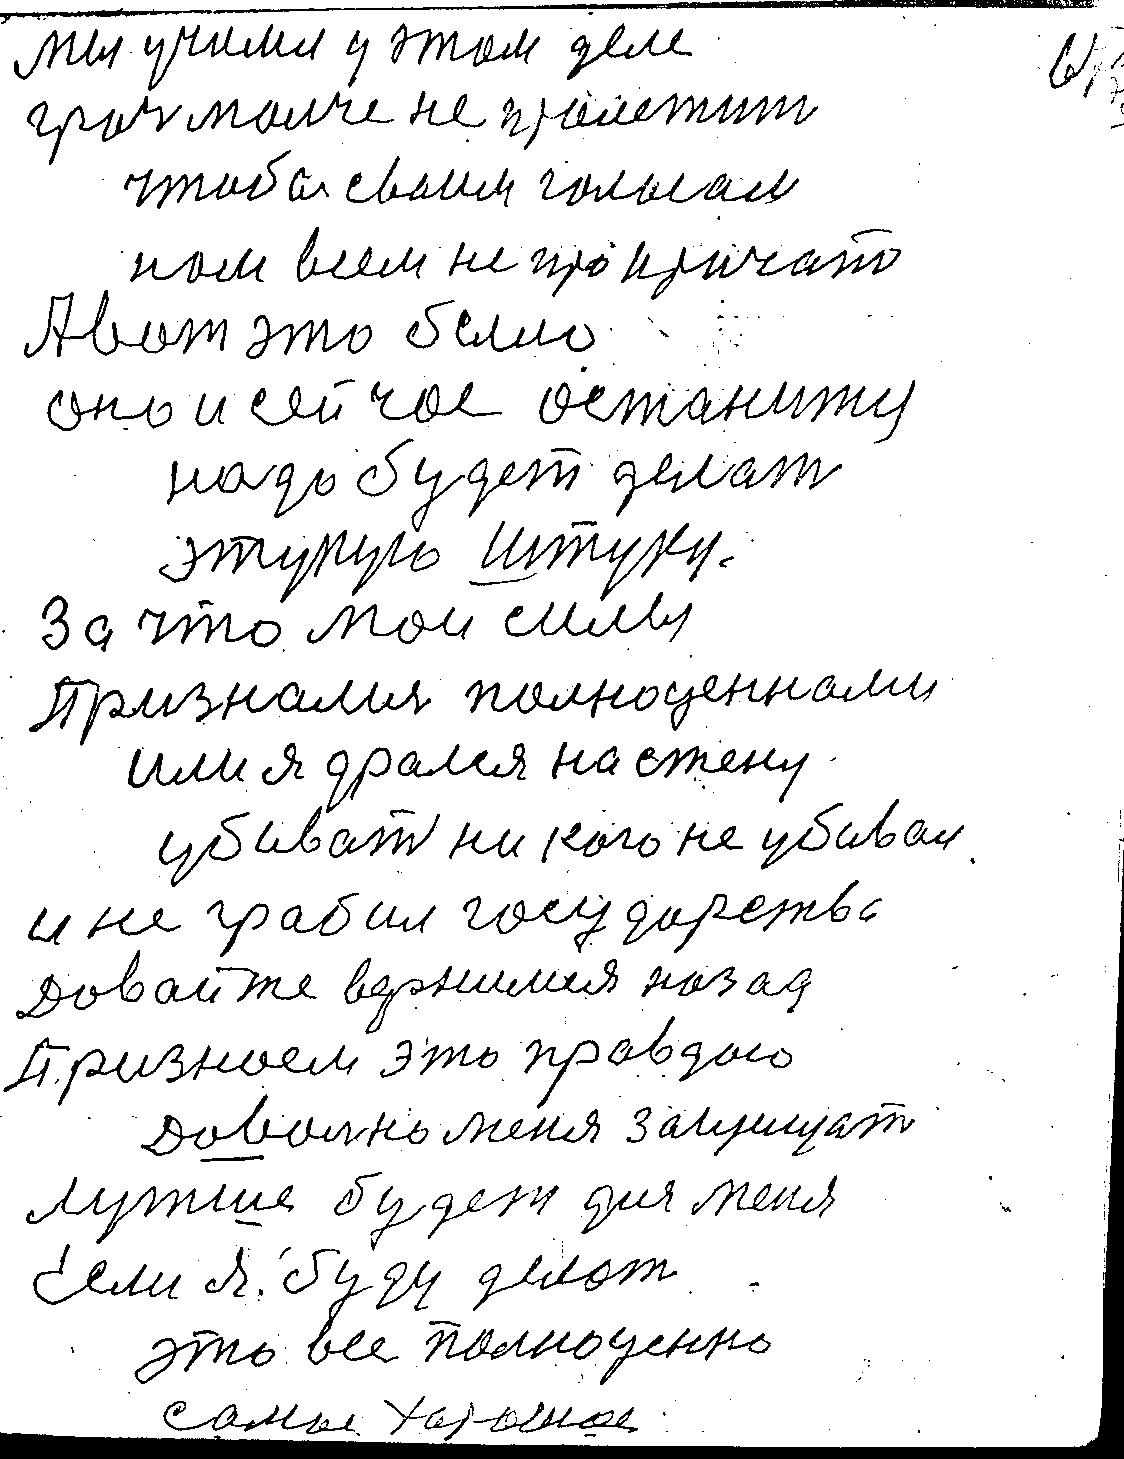 мы учимся у этом деле
грач молче не пролетит
чтобы своим голосам
нам всем не прокричат
А вот это было
оно и сейчас останиту
надо будет делат
этукую штуку.
За что мои силы
Признался полноценнами
или я дрался на стену
убиват никого не убивал
и не грабил государства
довайте вернимся назад
Признаем это правдою
довольно меня защищат
лутше будет для меня
Если я буду делат
это все полноценно
самые харошое